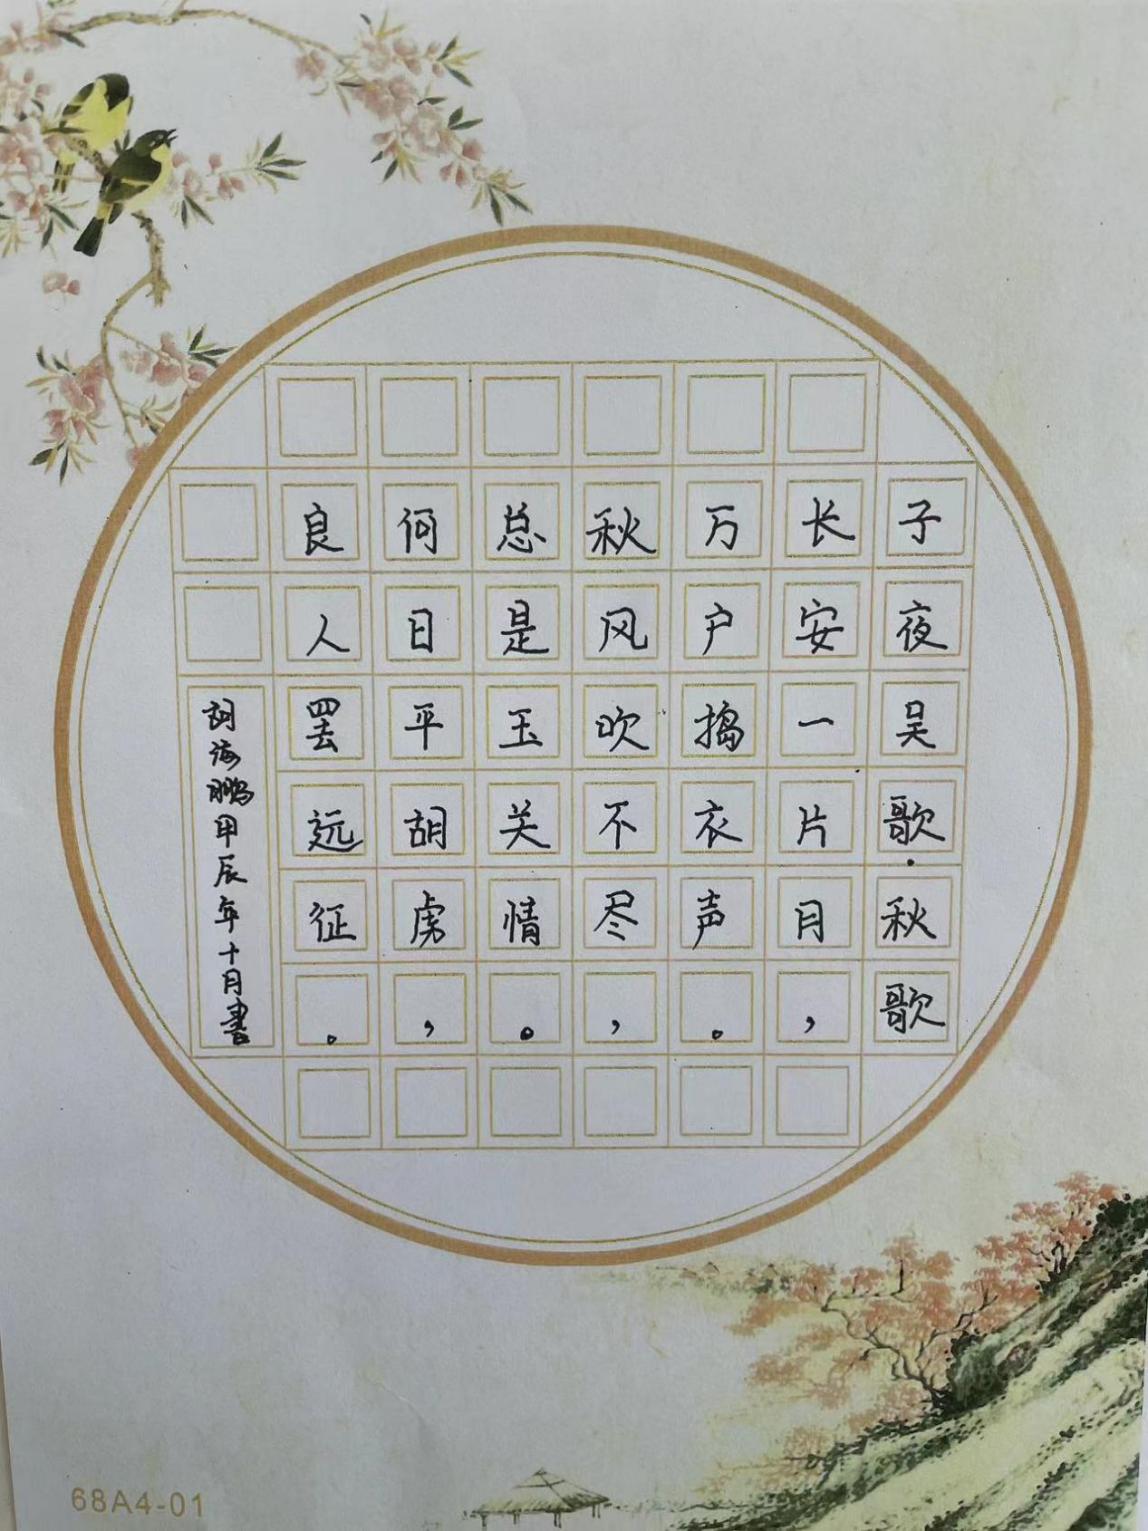 子夜吴歌·秋歌
长安一片月，
万户捣衣声。
秋风吹不尽，
总是玉关情。
何日平胡虏，
良人罢远征。
胡海鹏甲辰年十月书
68A4-01